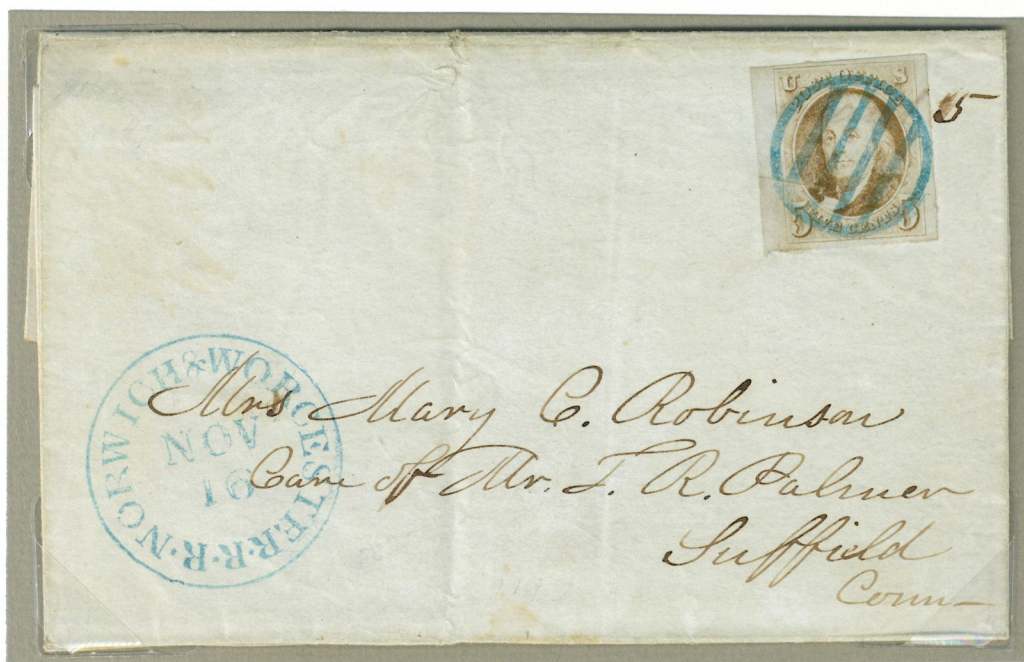 U S
POST OFFICE
FIVE CENTS
5 5
5
NORWICH & WORCESTER R.R.
NOV
16
Mrs Mary C. Robinson
Care of Mr. T. R. Palmer
Suffield
Conn